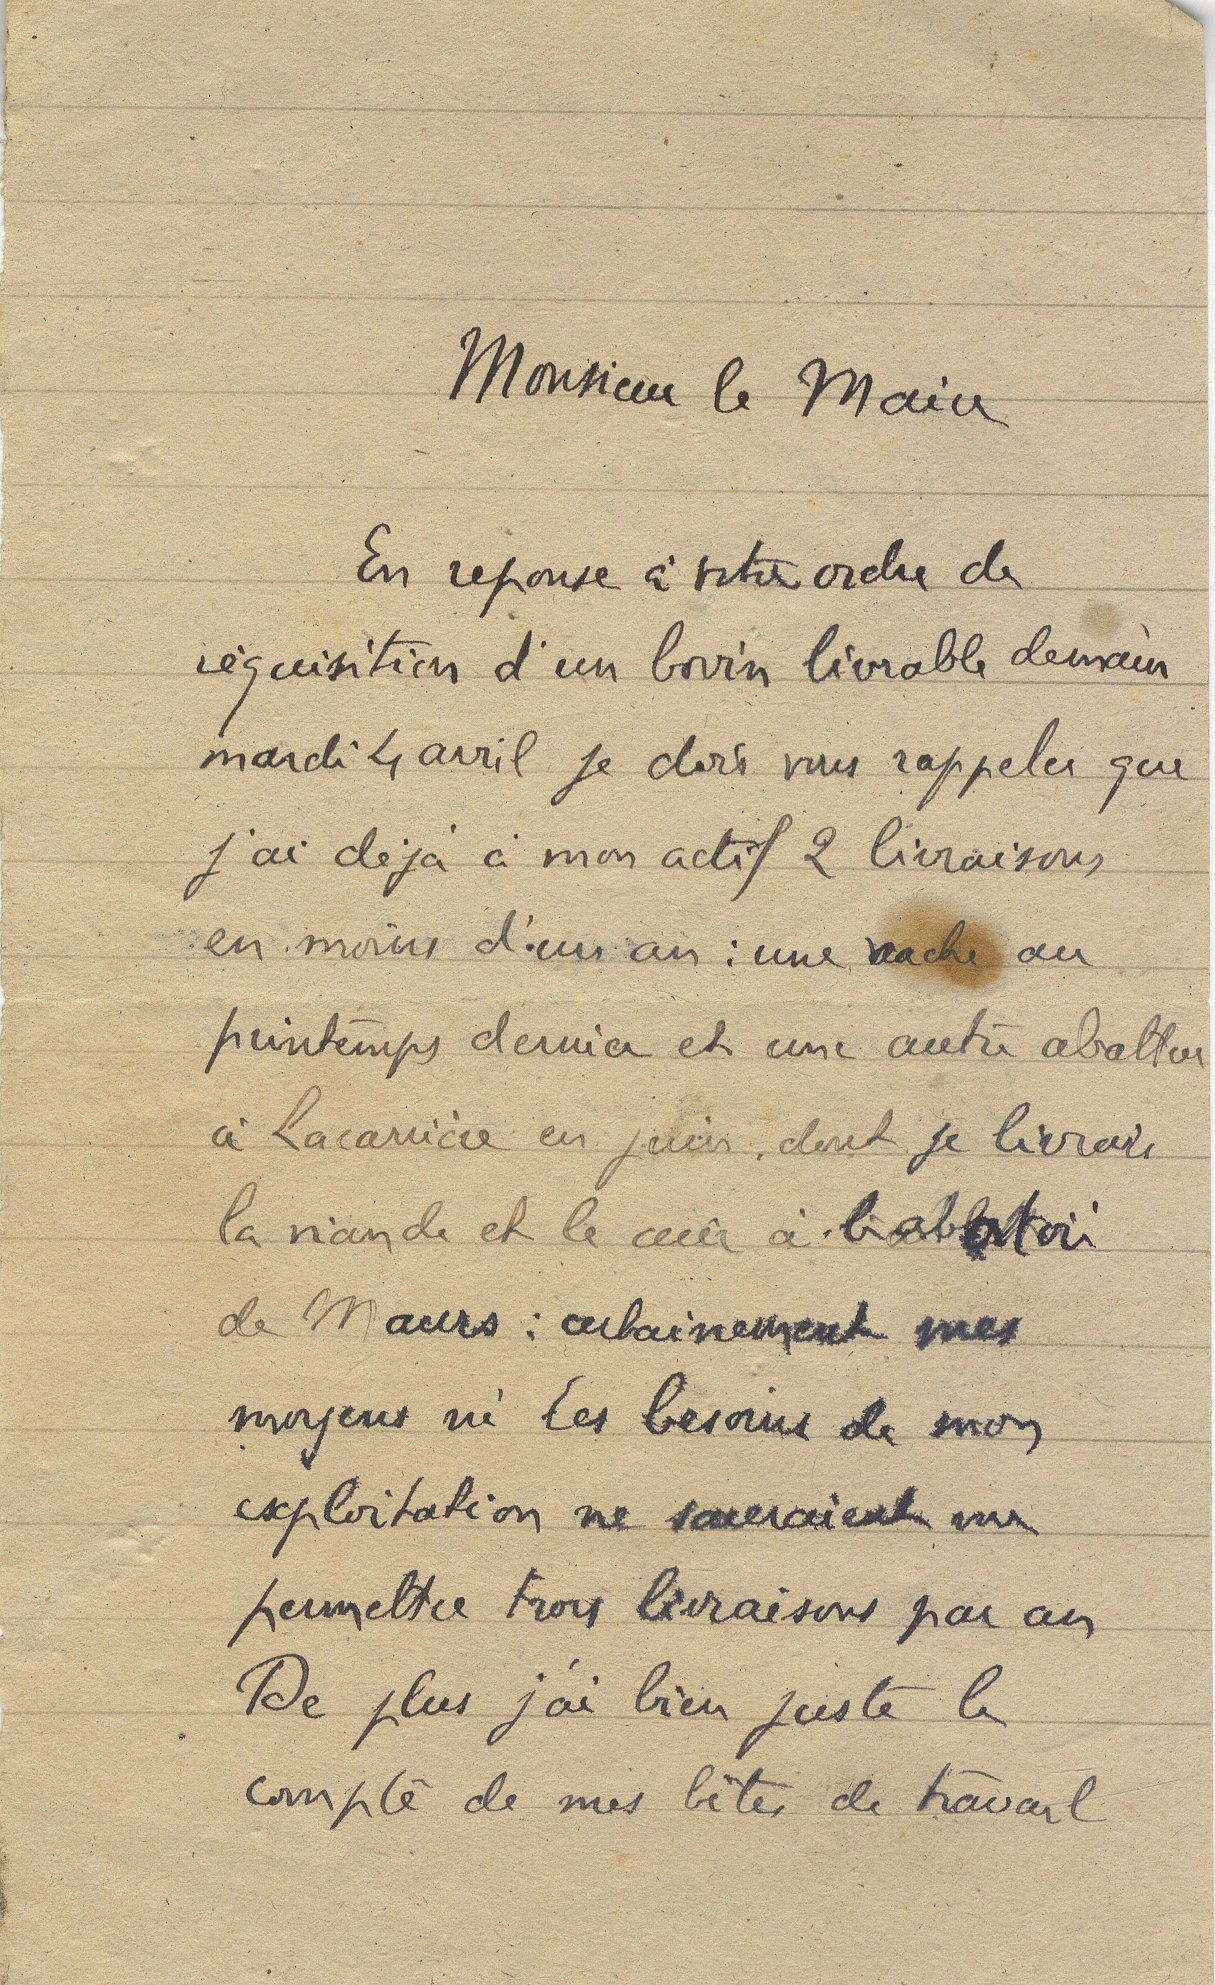 Monsieur le Maire
En reponse à votre ordre de
réquisition d'un bovin livrable demain
mardi 4 avril je dois vous rappeler que
j'ai déjà à mon actif 2 livraisons
en moins d'un an : une vache au
printemps dernier et une autre abattue
à Lacarrière en juin, dont je livrais
la viande et le cuir à l'abbatoir
de Maurs : certainement mes
moyens ni les besoins de mon
exploitation ne saueraient me
permettre trois livraisons par an
De plus j'ai bien juste le
compte de mes bêtes de travail